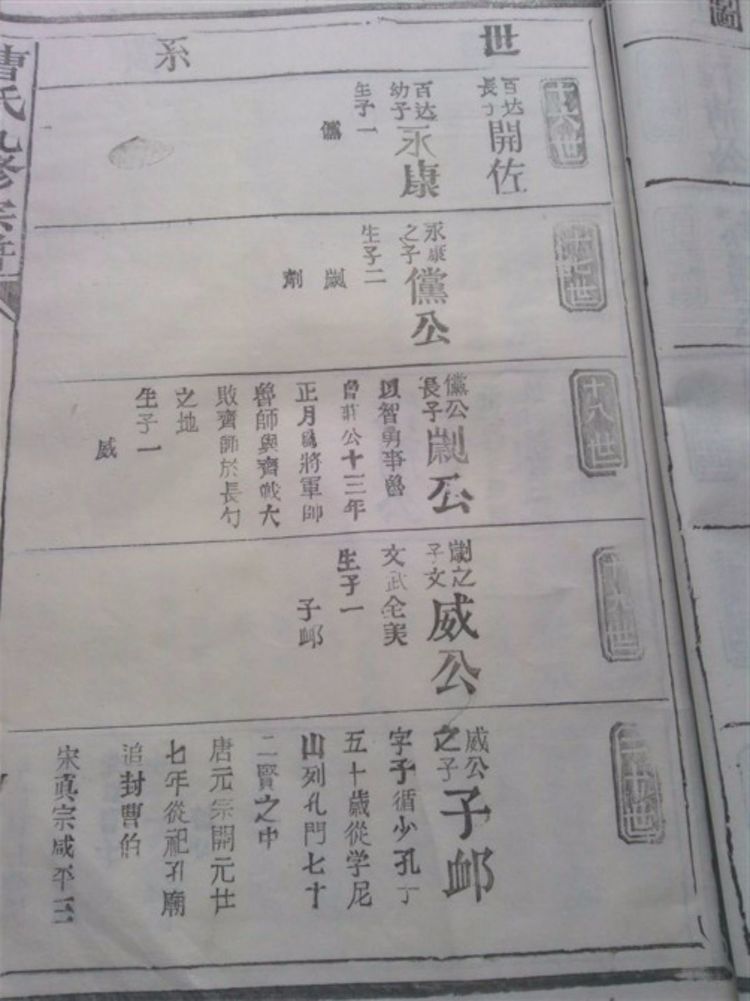 世系
十六世
百达
長子
開佐
百达
幼子
永康
生子一
儻
永康
之子
儻公
生子二
劌
劑
十八世
儻公
長子
劌公
以智勇事魯
莊公十三年
正月為將軍帥
魯師與齊戰大
敗齊師於長勺
之地
生子一
威
劌之
子文
威公
文武全美
生子一
子邮
二十世
威公
之子
子邮
字子循少孔丁
五十歲從学尼
山列孔門七十
二賢之中
唐元宗開元廿
七年從祀孔廟
追封曹伯
宋真宗咸平三
曹氏九修宗譜